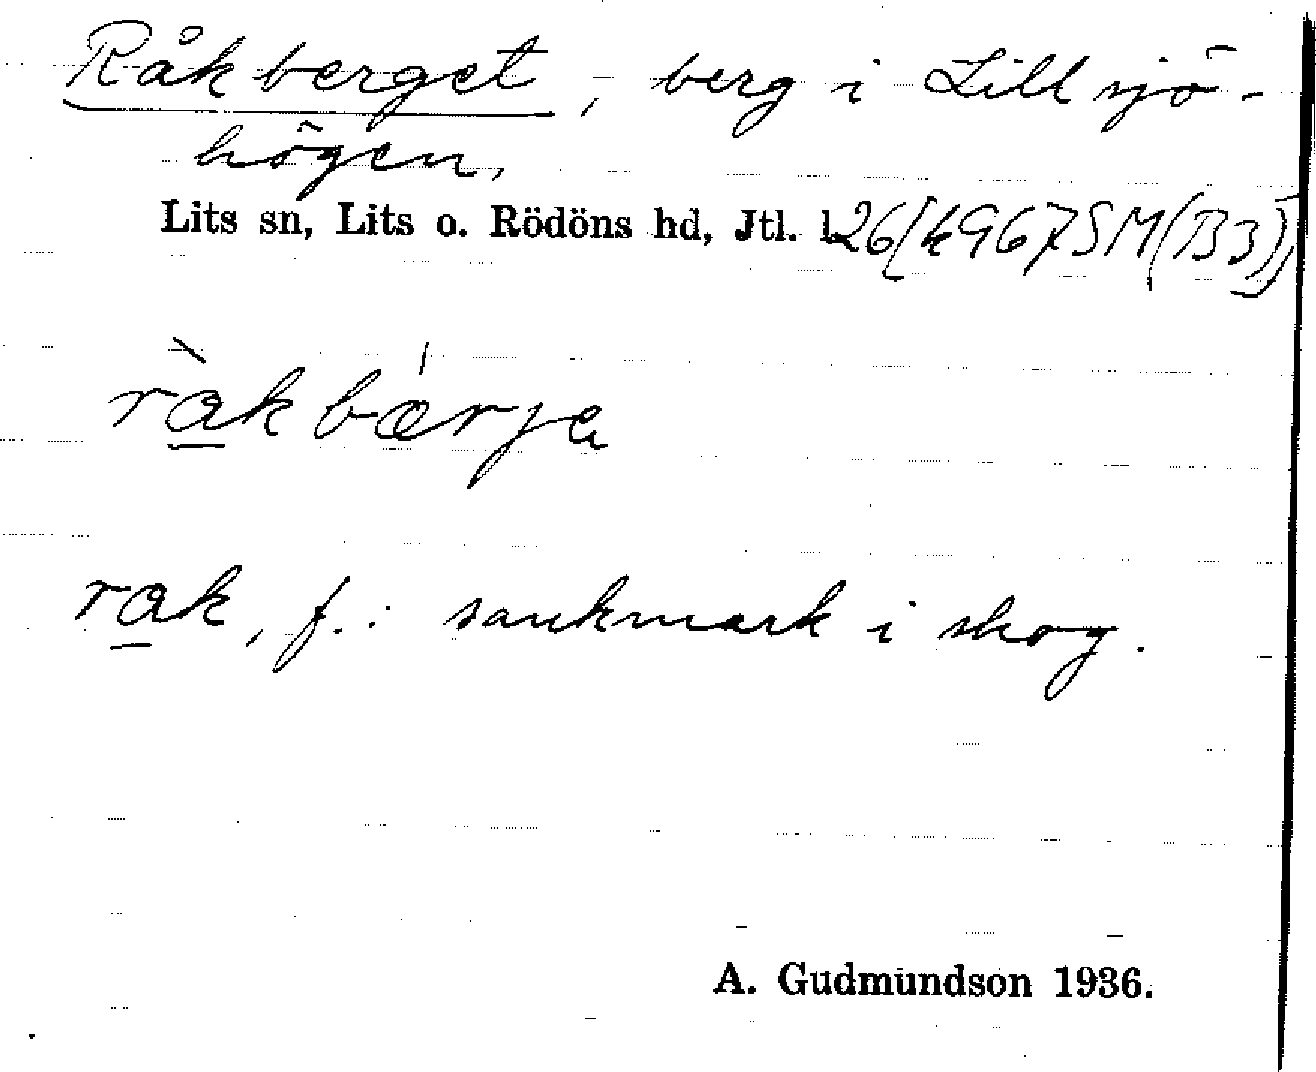 Råkberget, berg i Lillsjö-
högen,
Lits sn, Lits o. Rödöns hd, Jtl. l
ràkbærja
rak, f.: sankmark i skog.
A. Gudmundson 1936.